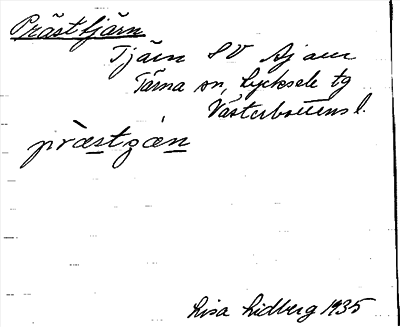 Prästtjärn
Tjärn SV Ajaur
Tärna sn, Lycksele tg
Västerbottens l.
præstʒæn
Lisa Lidberg 1935